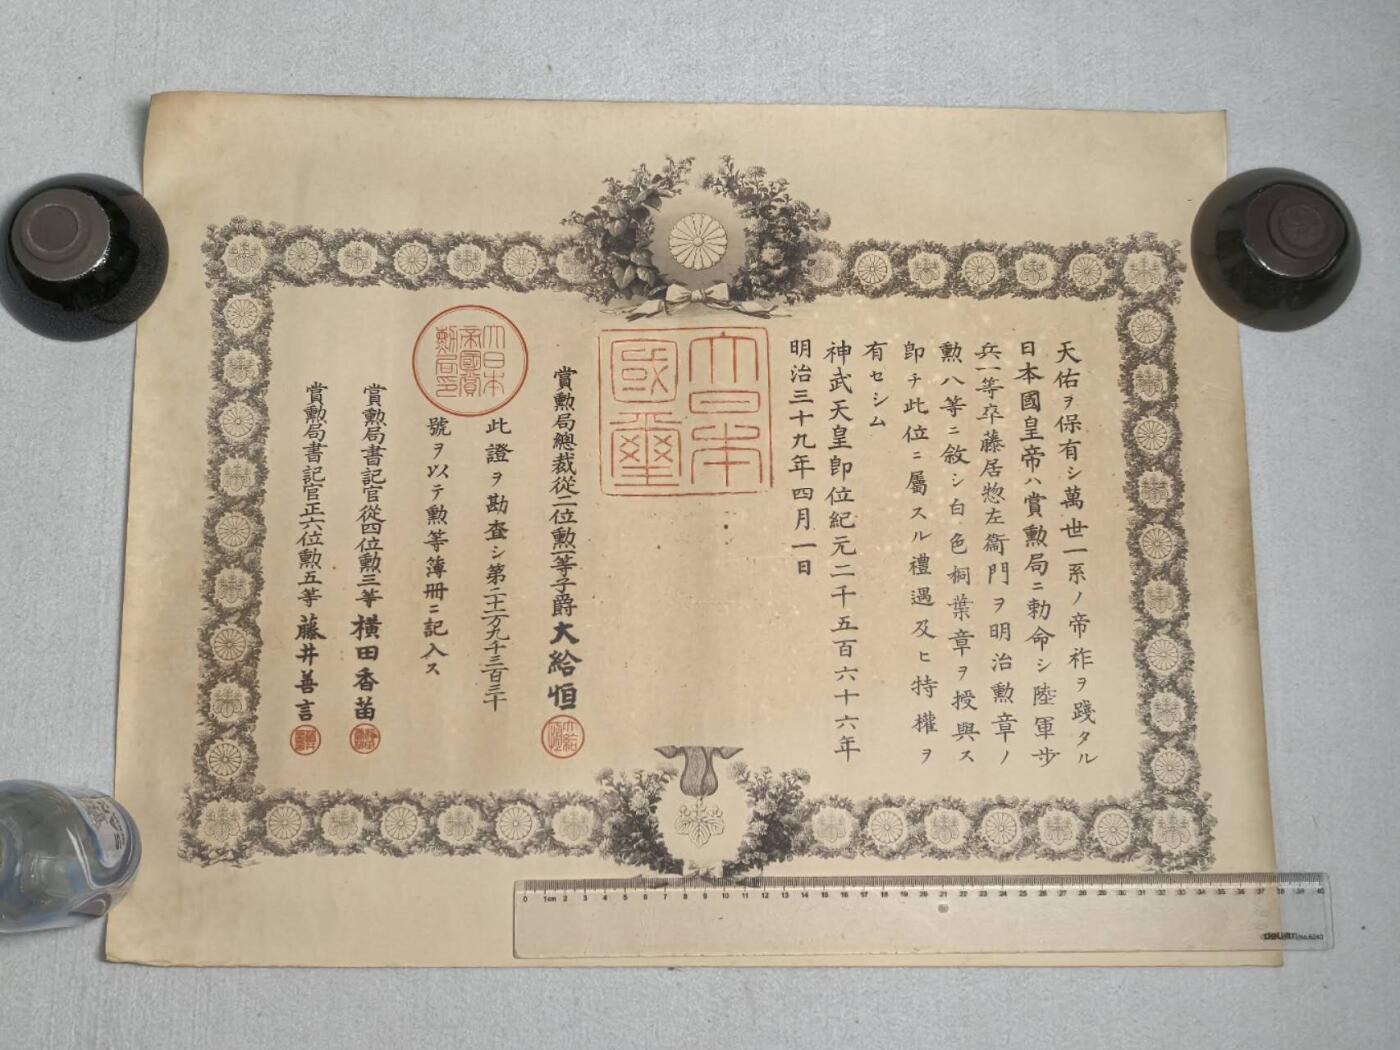 天佑ヲ保有シ萬世一系ノ帝祚ヲ踐タル
日本國皇帝ハ賞勲局ニ勅命シ陸軍歩
兵一等卒藤居惣左衞門ヲ明治勲章ノ
勲八等ニ敘シ白色桐葉章ヲ授與ス
卽チ此位ニ屬スル禮遇及ヒ特權ヲ
有セシム
神武天皇卽位紀元二千五百六十六年
明治三十九年四月一日
大日本
國璽
賞勲局總裁從二位勲一等子爵大給恒
大日本
帝國賞
勲局印
此證ヲ勘査シ第二十一万九千三百三十
號ヲ以テ勲等簿冊ニ記入ス
賞勲局書記官從四位勲三等横田香苗
賞勲局書記官正六位勲五等藤井善言
0 1cm 2 3 4 5 6 7 8 9 10 11 12 13 14 15 16 17 18 19 20 21 22 23 24 25 26 27 28 29 30 31 32 33 34 35 36 37 38 39 40
deli No.6240